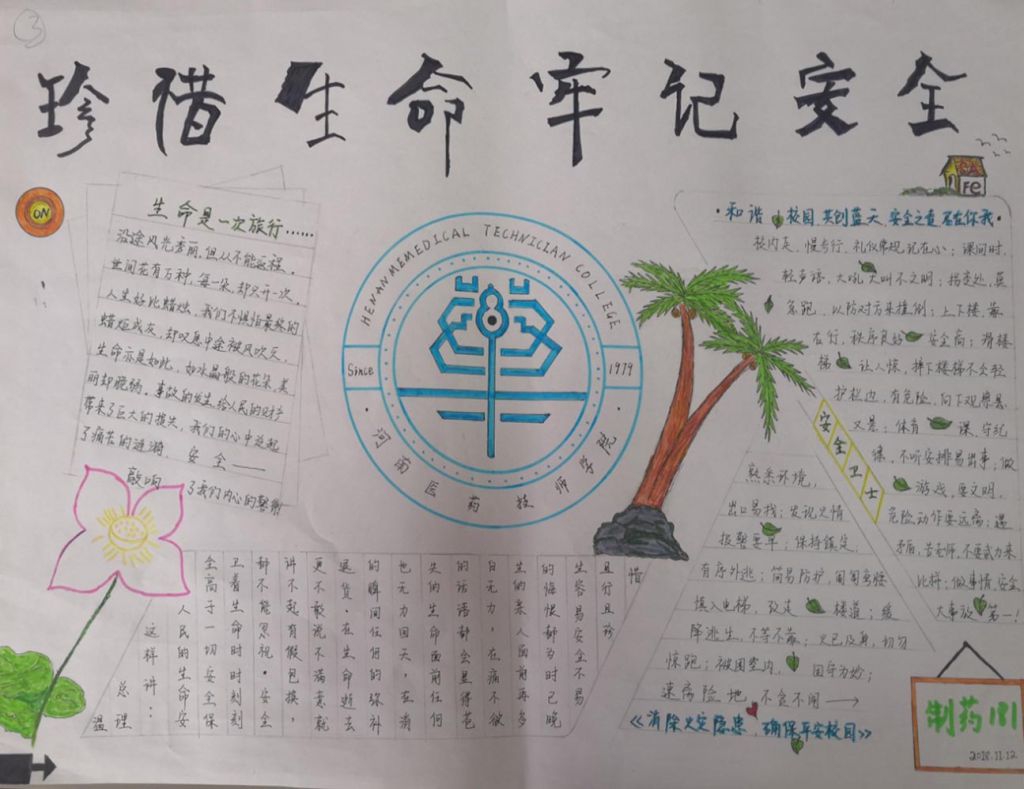 ③
珍惜生命牢记安全
ON
生命是一次旅行……
沿途风光秀丽,但从不能返程。
世间花有万种,每一朵却只开一次,
人生好比蜡烛,我们不惧怕最终的
蜡炬成灰,却叹息中途被风吹灭,
生命亦是如此,如水晶般的花朵,美
丽却脆弱,事故的发生给人民的财产
带来了巨大的损失,我们的心中泛起
了痛苦的涟漪。安全——
敲响 了我们内心的警钟
HENANMEMEDICAL TECHNICIAN COLLEGE
Since
1979
河南医药技师学院
Fe
·和谐校园,共创蓝天,安全之责,在你我·
校内走,慢步行,礼仪常规,记在心;课间时,
轻多语,大吼大叫不文明;拐弯处,莫
急跑,以防对方来撞倒;上下楼,靠
右行,秩序良好安全高;滑楼
梯,让人惊,摔下楼梯不会轻
护栏边,有危险,向下观察易
体育课,守纪
律,不听安排易出事,做
游戏,要文明,
危险动作要远离;遇
矛盾,告老师,不要武力来
比拼;做事情,安全
大事放第一!
安全卫士
熟悉环境,
出口易找;发现火情
报警要早;保持镇定,
有序外逃;简易防护,
慎入电梯,改走楼道;缓
降逃生,不等不靠;火已及身,切勿
惊跑;被困室内,固守为妙;
速离险地,不贪不闹→
《消除火灾隐患,确保平安校园》
惜
且行且珍
生容易安全不易
的悔恨都为时已晚
生的亲人面前再多
日无力,在痛不欲
的话语都会显得苍
失的生命面前任何
也无力回天,在消
的瞬间任何的弥补
退货,在生命逝去
更不敢说不满意就
讲不起有假包换,
都不能忽视,安全
卫着生命时时刻刻
全高于一切安全保
人民的生命安
这样讲:
总理
温
制药181
2018.11.12